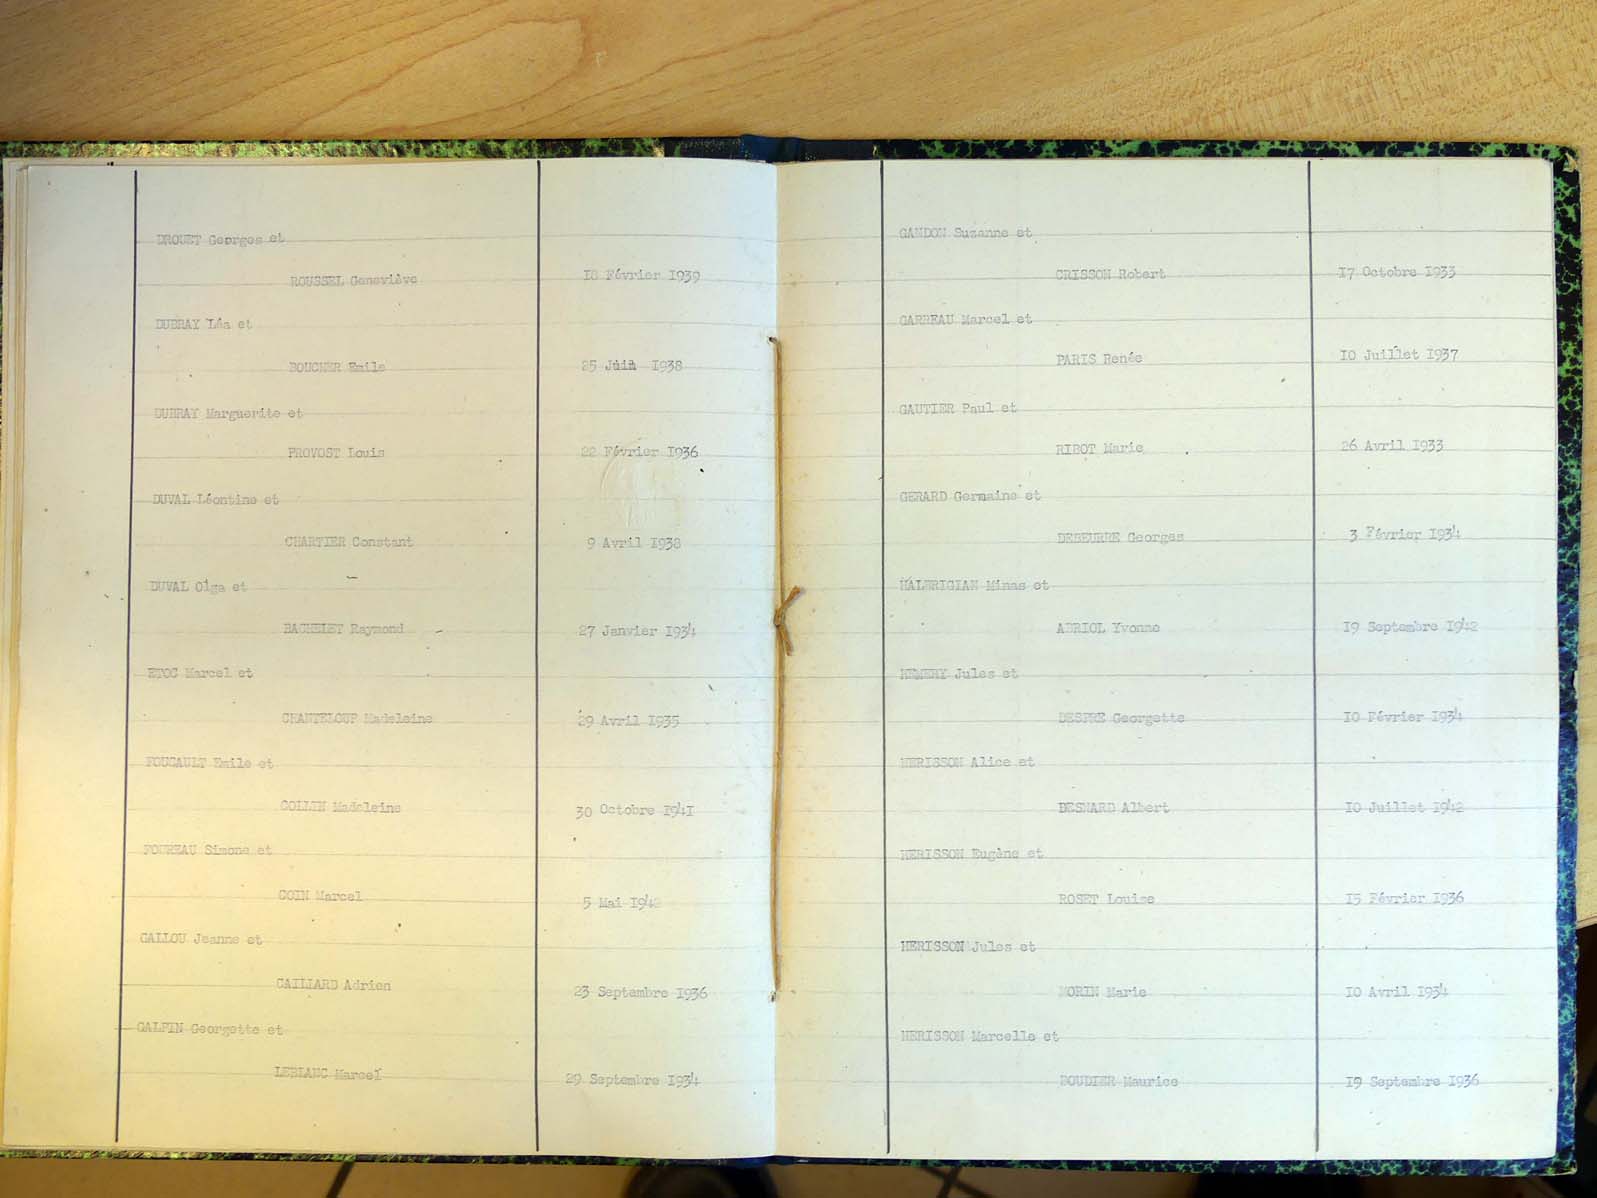 DROUET Georges et
ROUSSEL Geneviève 18 Février 1939
DUBRAY Léa et
BOUCHER Emile 25 Juin 1938
DUBRAY Marguerite et
PROVOST Louis 22 Février 1936
DUVAL Léontine et
CHARTIER Constant 9 Avril 1938
DUVAL Olga et
BACHELET Raymond 27 Janvier 1934
ETOC Marcel et
CHANTELOUP Madeleine 29 Avril 1935
FOUCAULT Emile et
COLLIN Madeleine 30 Octobre 1941
FOUREAU Simone et
COIN Marcel 5 Mai 1942
GALLOU Jeanne et
CAILLARD Adrien 23 Septembre 1936
GALPIN Georgette et
LEBLANC Marcel 29 Septembre 1934
GANDON Suzanne et
CRISSON Robert 17 Octobre 1933
GARREAU Marcel et
PARIS Renée 10 Juillet 1937
GAUTIER Paul et
RIBOT Marie 26 Avril 1933
GERARD Germaine et
DEBEURRE Georges 3 Février 1934
HALERIGIAN Minas et
ABRIOL Yvonne 19 Septembre 1942
HEMERY Jules et
DESPRE Georgette 10 Février 1934
HERISSON Alice et
BESNARD Albert 10 Juillet 1942
HERISSON Eugène et
ROSET Louise 15 Février 1936
HERISSON Jules et
MORIN Marie 10 Avril 1934
HERISSON Marcelle et
BOUDIER Maurice 19 Septembre 1936